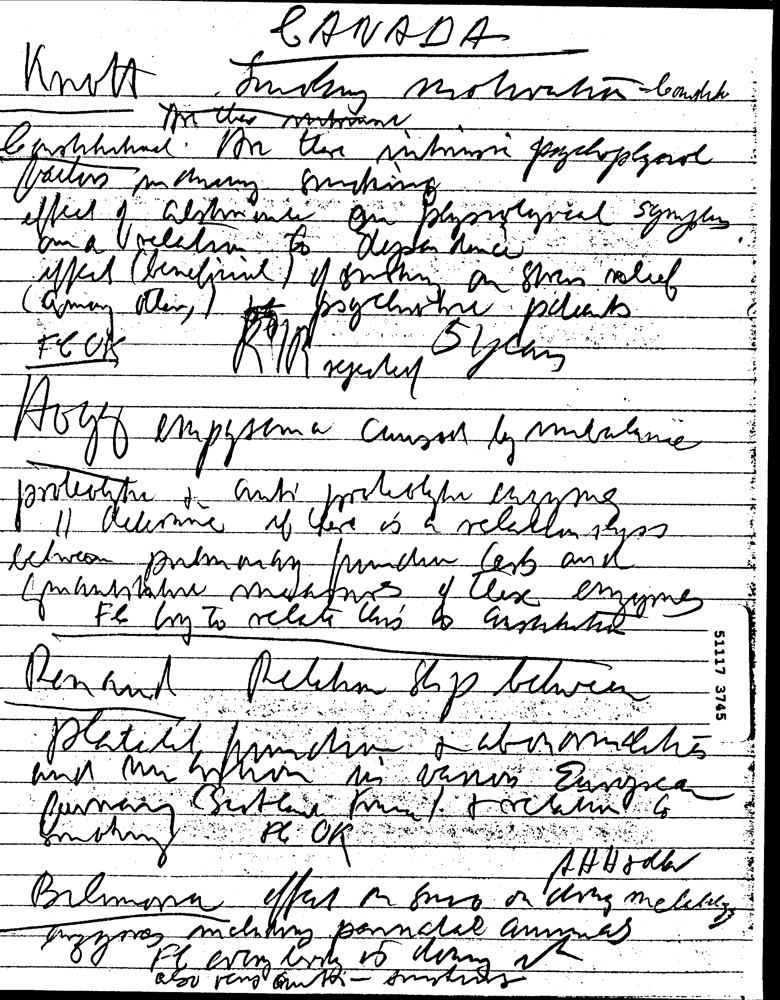 CANADA
Knott Smoking motivation -
Are there intrinsic
Constitutional. Are there intrinsic
factors inducing smoking
effect of abstinence on physiological
and relation to dependence
effect (beneficial) of smoking on stress relief
(among other,) psychiatric patients
FC OK RJR rejected 5 years
Hogg empysema caused by imbalance
proteolytic & anti proteolytic enzymes
determine if there is a relationships
between pulmonary function tests and
quantitative measures of these enzymes
FC try to relate this to constitution
Renaud Relation ship between
platelet function & abnormalities
and nutrition in various European
(Scotland, ) & relation to
smoking FC OK
effect on on drug
enzymes including animals
FC every body is doing it
also very anti-smoking
51117 3745